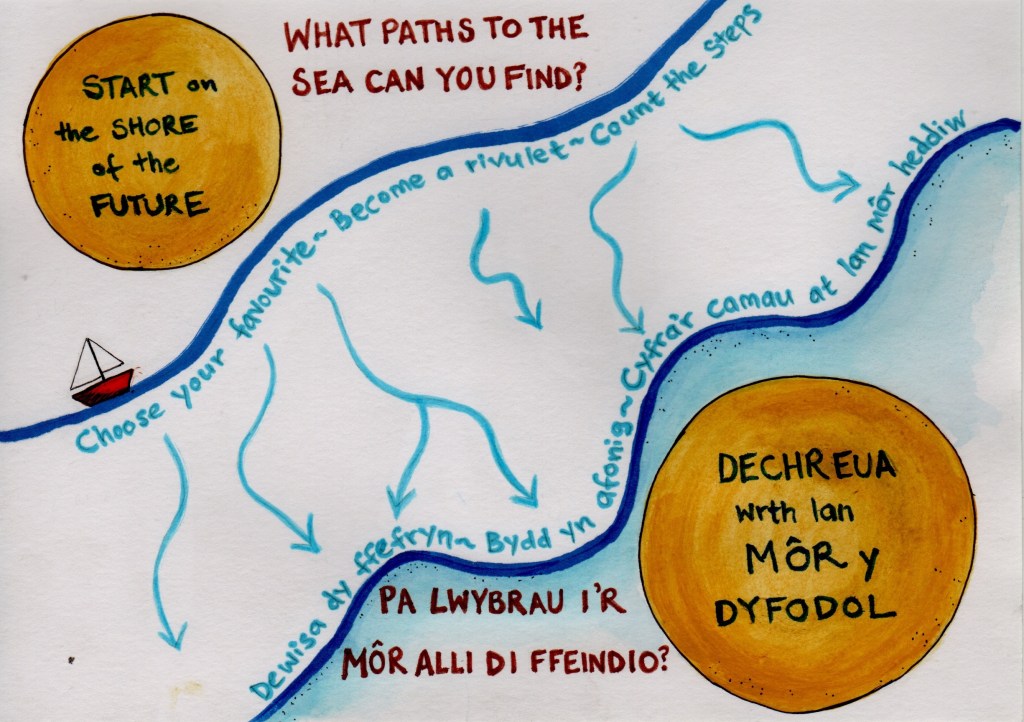 START on
the SHORE
of the
FUTURE
WHAT PATHS TO THE
SEA CAN YOU FIND?
Choose your favourite~Become a rivulet~Count the steps
Dewisa dy ffefryn~Bydd yn afonig~Cyfra'r camau at lan môr heddiw
DECHREUA
wrth lan
MÔR y
DYFODOL
PA LWYBRAU I'R
MÔR ALLI DI FFEINDIO?